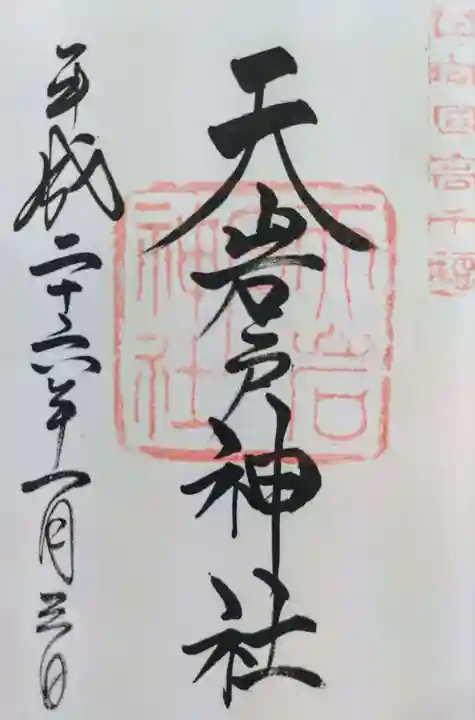 日向国高千穂
天岩戸神社
天岩
神社
平成二十六年一月三日